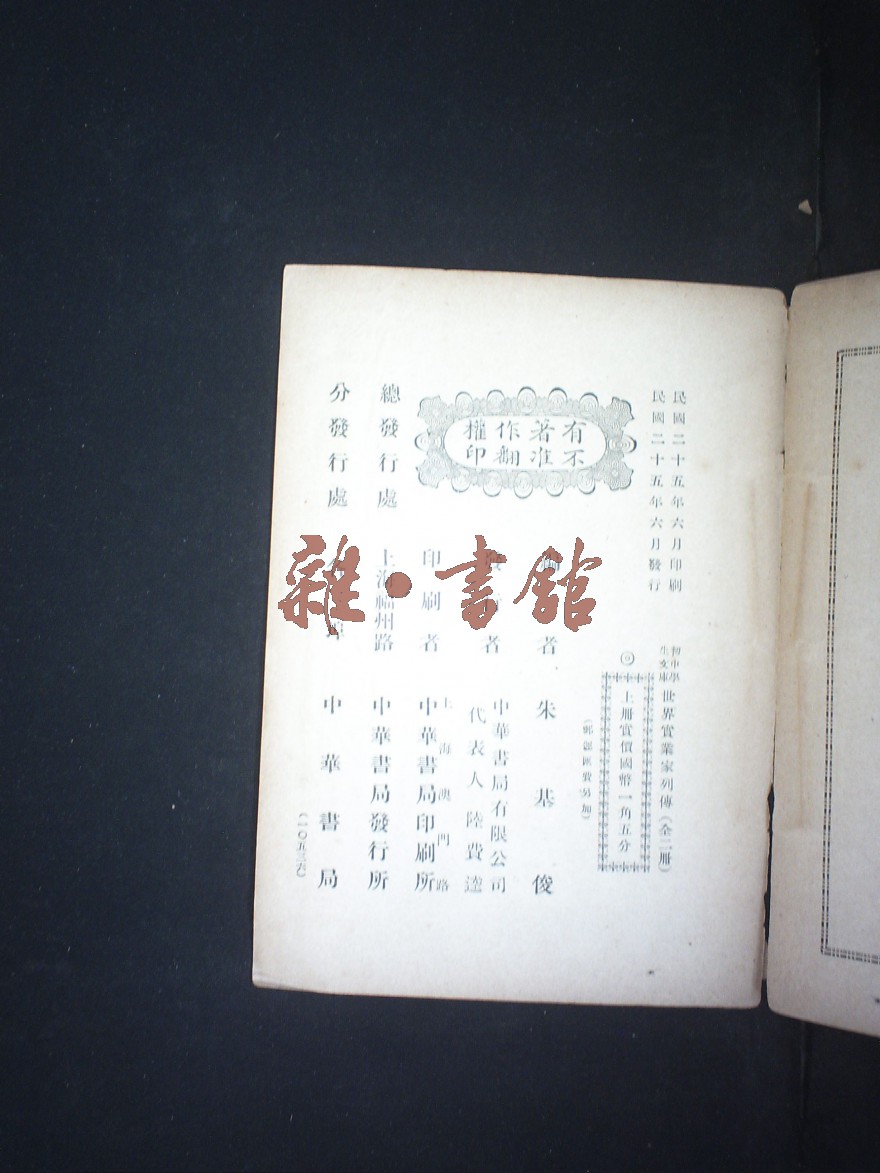 民國二十五年六月印刷
民國二十五年六月發行
初中學生文庫
世界實業家列傳（全二冊）
◎
上册實價國幣一角五分
（郵運匯費另加）
有著作權
不准翻印
者 朱基俊
者 中華書局有限公司
代表人 陸費逵
印刷者 上海澳門路
中華書局印刷所
總發行處 上海福州路 中華書局發行所
分發行處 中華書局
（一〇五三六）
雜·書館